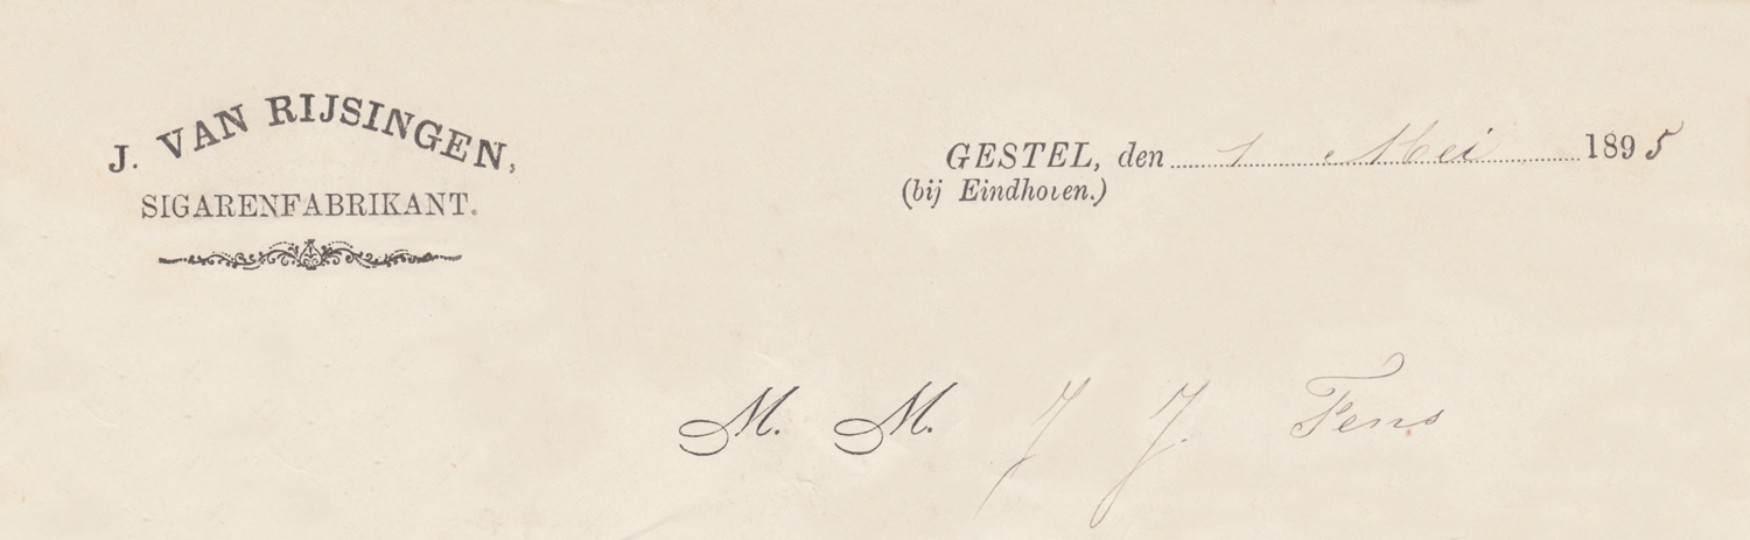 J. VAN RIJSINGEN,
SIGARENFABRIKANT.
GESTEL, den 1 Mei 1895
(bij Eindhoven.)
M. M. J J. Fens